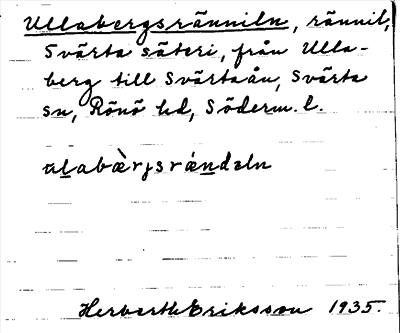 Ullabergsränniln, rännil,
Svärta säteri, från Ulla-
berg till Svärtaån, Svärta
sn, Rönö hd, Söderm. l.
ulabæ̀rjsrǽndəln
Herbert Eriksson 1935.